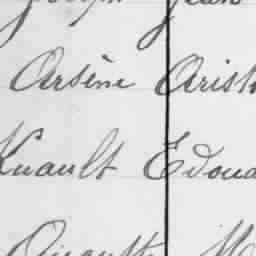 Joseph Jean
Arsène Arist
Knault Edoua
Auguste M